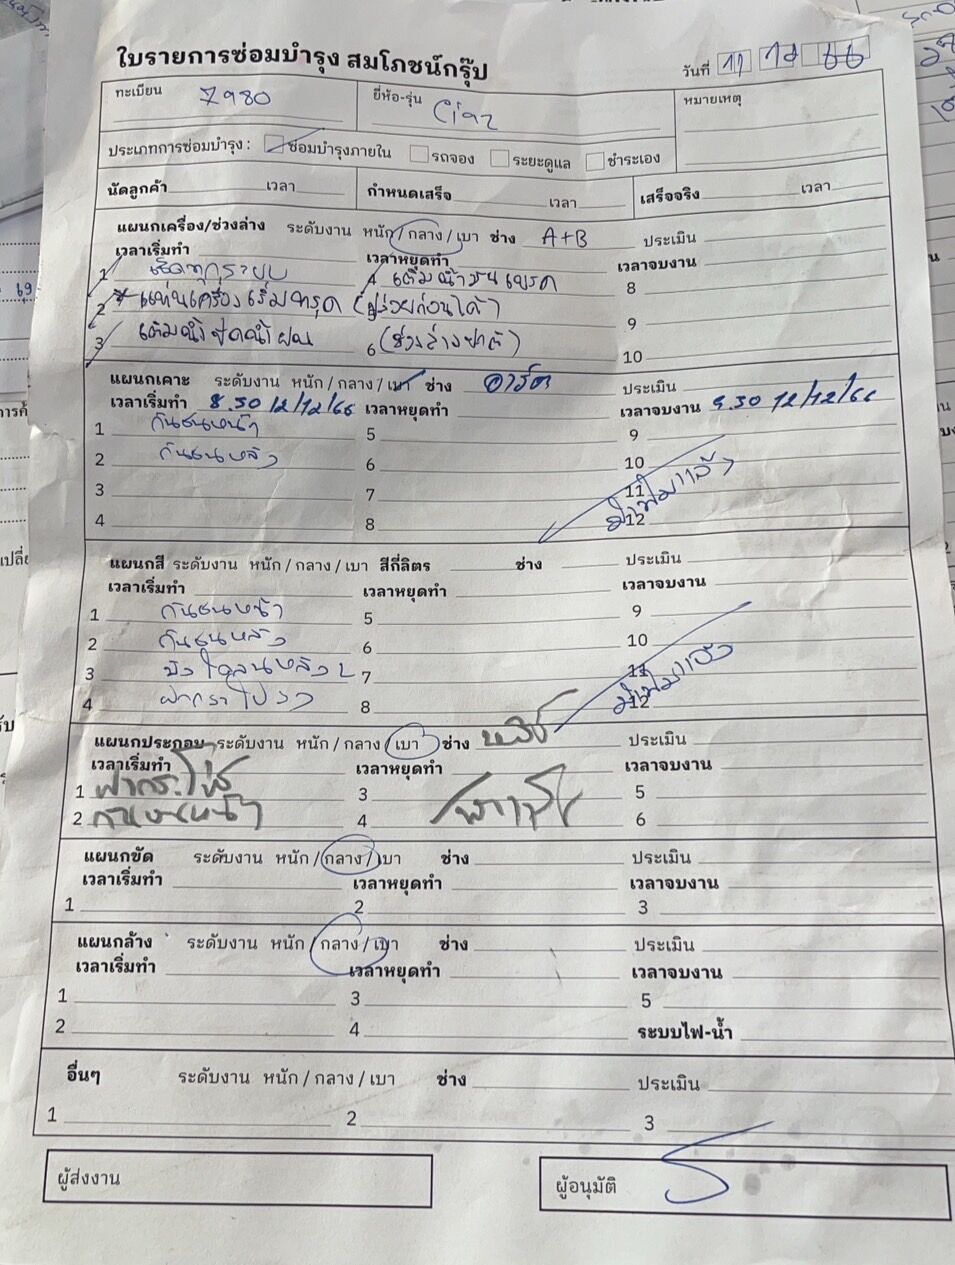 ใบรายการซ่อมบำรุง สมโภชน์กรุ๊ป
วันที่ 11 12 66
ทะเบียน 7980 ยี่ห้อ-รุ่น Ciaz หมายเหตุ
ประเภทการซ่อมบำรุง : ซ่อมบำรุงภายใน รถจอง ระยะดูแล ชำระเอง
นัดลูกค้า เวลา กำหนดเสร็จ เวลา เสร็จจริง เวลา
แผนกเครื่อง/ช่วงล่าง ระดับงาน หนัก/กลาง/เบา ช่าง A+B ประเมิน
เวลาเริ่มทำ เวลาหยุดทำ เวลาจบงาน
1 เช็คทุกระบบ 4 เติมน้ำมันเบรค 8
2 * แท่นเครื่องเริ่มทรุด (ปล่อยก่อนได้) 9
3 เติมน้ำฉีดน้ำฝน 6 (ช่วงล่างปกติ) 10
แผนกเคาะ ระดับงาน หนัก/กลาง/เบา ช่าง ประเมิน
เวลาเริ่มทำ 8.30 12/12/66 เวลาหยุดทำ เวลาจบงาน 9.30 12/12/66
1 กันชนหน้า 5 9
2 กันชนหลัง 6 10
3 7 11
4 8 12
แผนกสี ระดับงาน หนัก/กลาง/เบา สีกี่ลิตร ช่าง ประเมิน
เวลาเริ่มทำ เวลาหยุดทำ เวลาจบงาน
1 กันชนหน้า 5 9
2 กันชนหลัง 6 10
3 บังโคลนหลัง L 7 11
4 ฝากระโปรง 8 12
แผนกประกอบ ระดับงาน หนัก/กลาง/เบา ช่าง ประเมิน
เวลาเริ่มทำ เวลาหยุดทำ เวลาจบงาน
1 3 5
2 กันชนหน้า 4 6
แผนกขัด ระดับงาน หนัก/กลาง/เบา ช่าง ประเมิน
เวลาเริ่มทำ เวลาหยุดทำ เวลาจบงาน
1 2 3
แผนกล้าง ระดับงาน หนัก/กลาง/เบา ช่าง ประเมิน
เวลาเริ่มทำ เวลาหยุดทำ เวลาจบงาน
1 3 5
2 4 ระบบไฟ-น้ำ
อื่นๆ ระดับงาน หนัก/กลาง/เบา ช่าง ประเมิน
1 2 3
ผู้ส่งงาน ผู้อนุมัติ